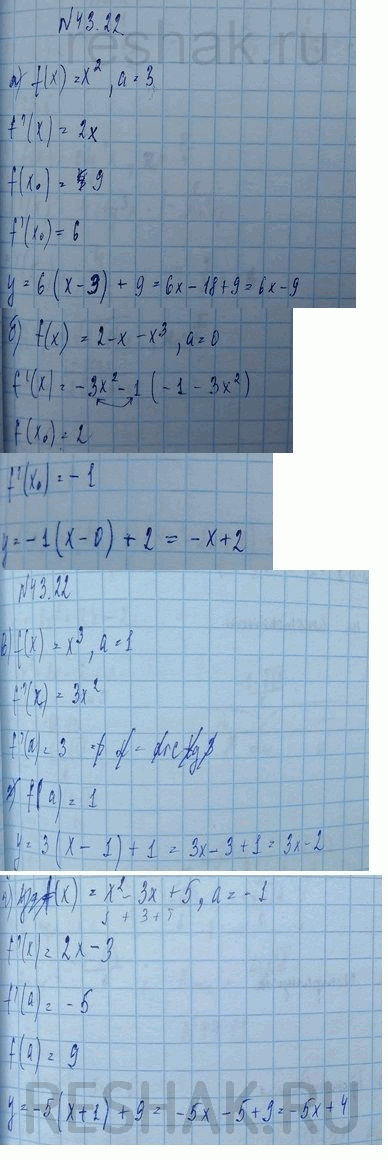 reshak.ru
N43.22
а) f(x) = x², a = 3
f'(x) = 2x
f(x₀) = 9
f'(x₀) = 6
y = 6(x-3) + 9 = 6x - 18 + 9 = 6x - 9
б) f(x) = 2-x-x³, a=0
f'(x) = -3x²-1 (-1-3x²)
f(x₀) = 2
f'(x₀) = -1
y = -1(x-0) + 2 = -x+2
N43.22
в) f(x) = x³, a=1
f'(x) = 3x²
f'(a) = 3
f(a) = 1
y = 3(x-1) + 1 = 3x-3+1 = 3x-2
f(x) = x²-3x+5, a=-1
1 + 3 + 5
f'(x) = 2x-3
f'(a) = -5
f(a) = 9
y = -5(x+1) + 9 = -5x-5+9 = -5x+4
RESHAK.RU